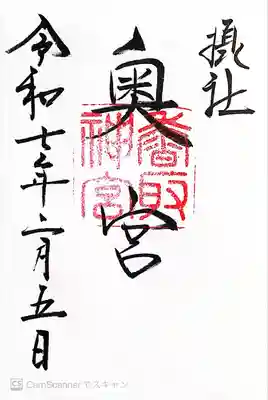 摂社
奥宮
香取
神宮
令和七年二月五日
CS CamScanner でスキャン